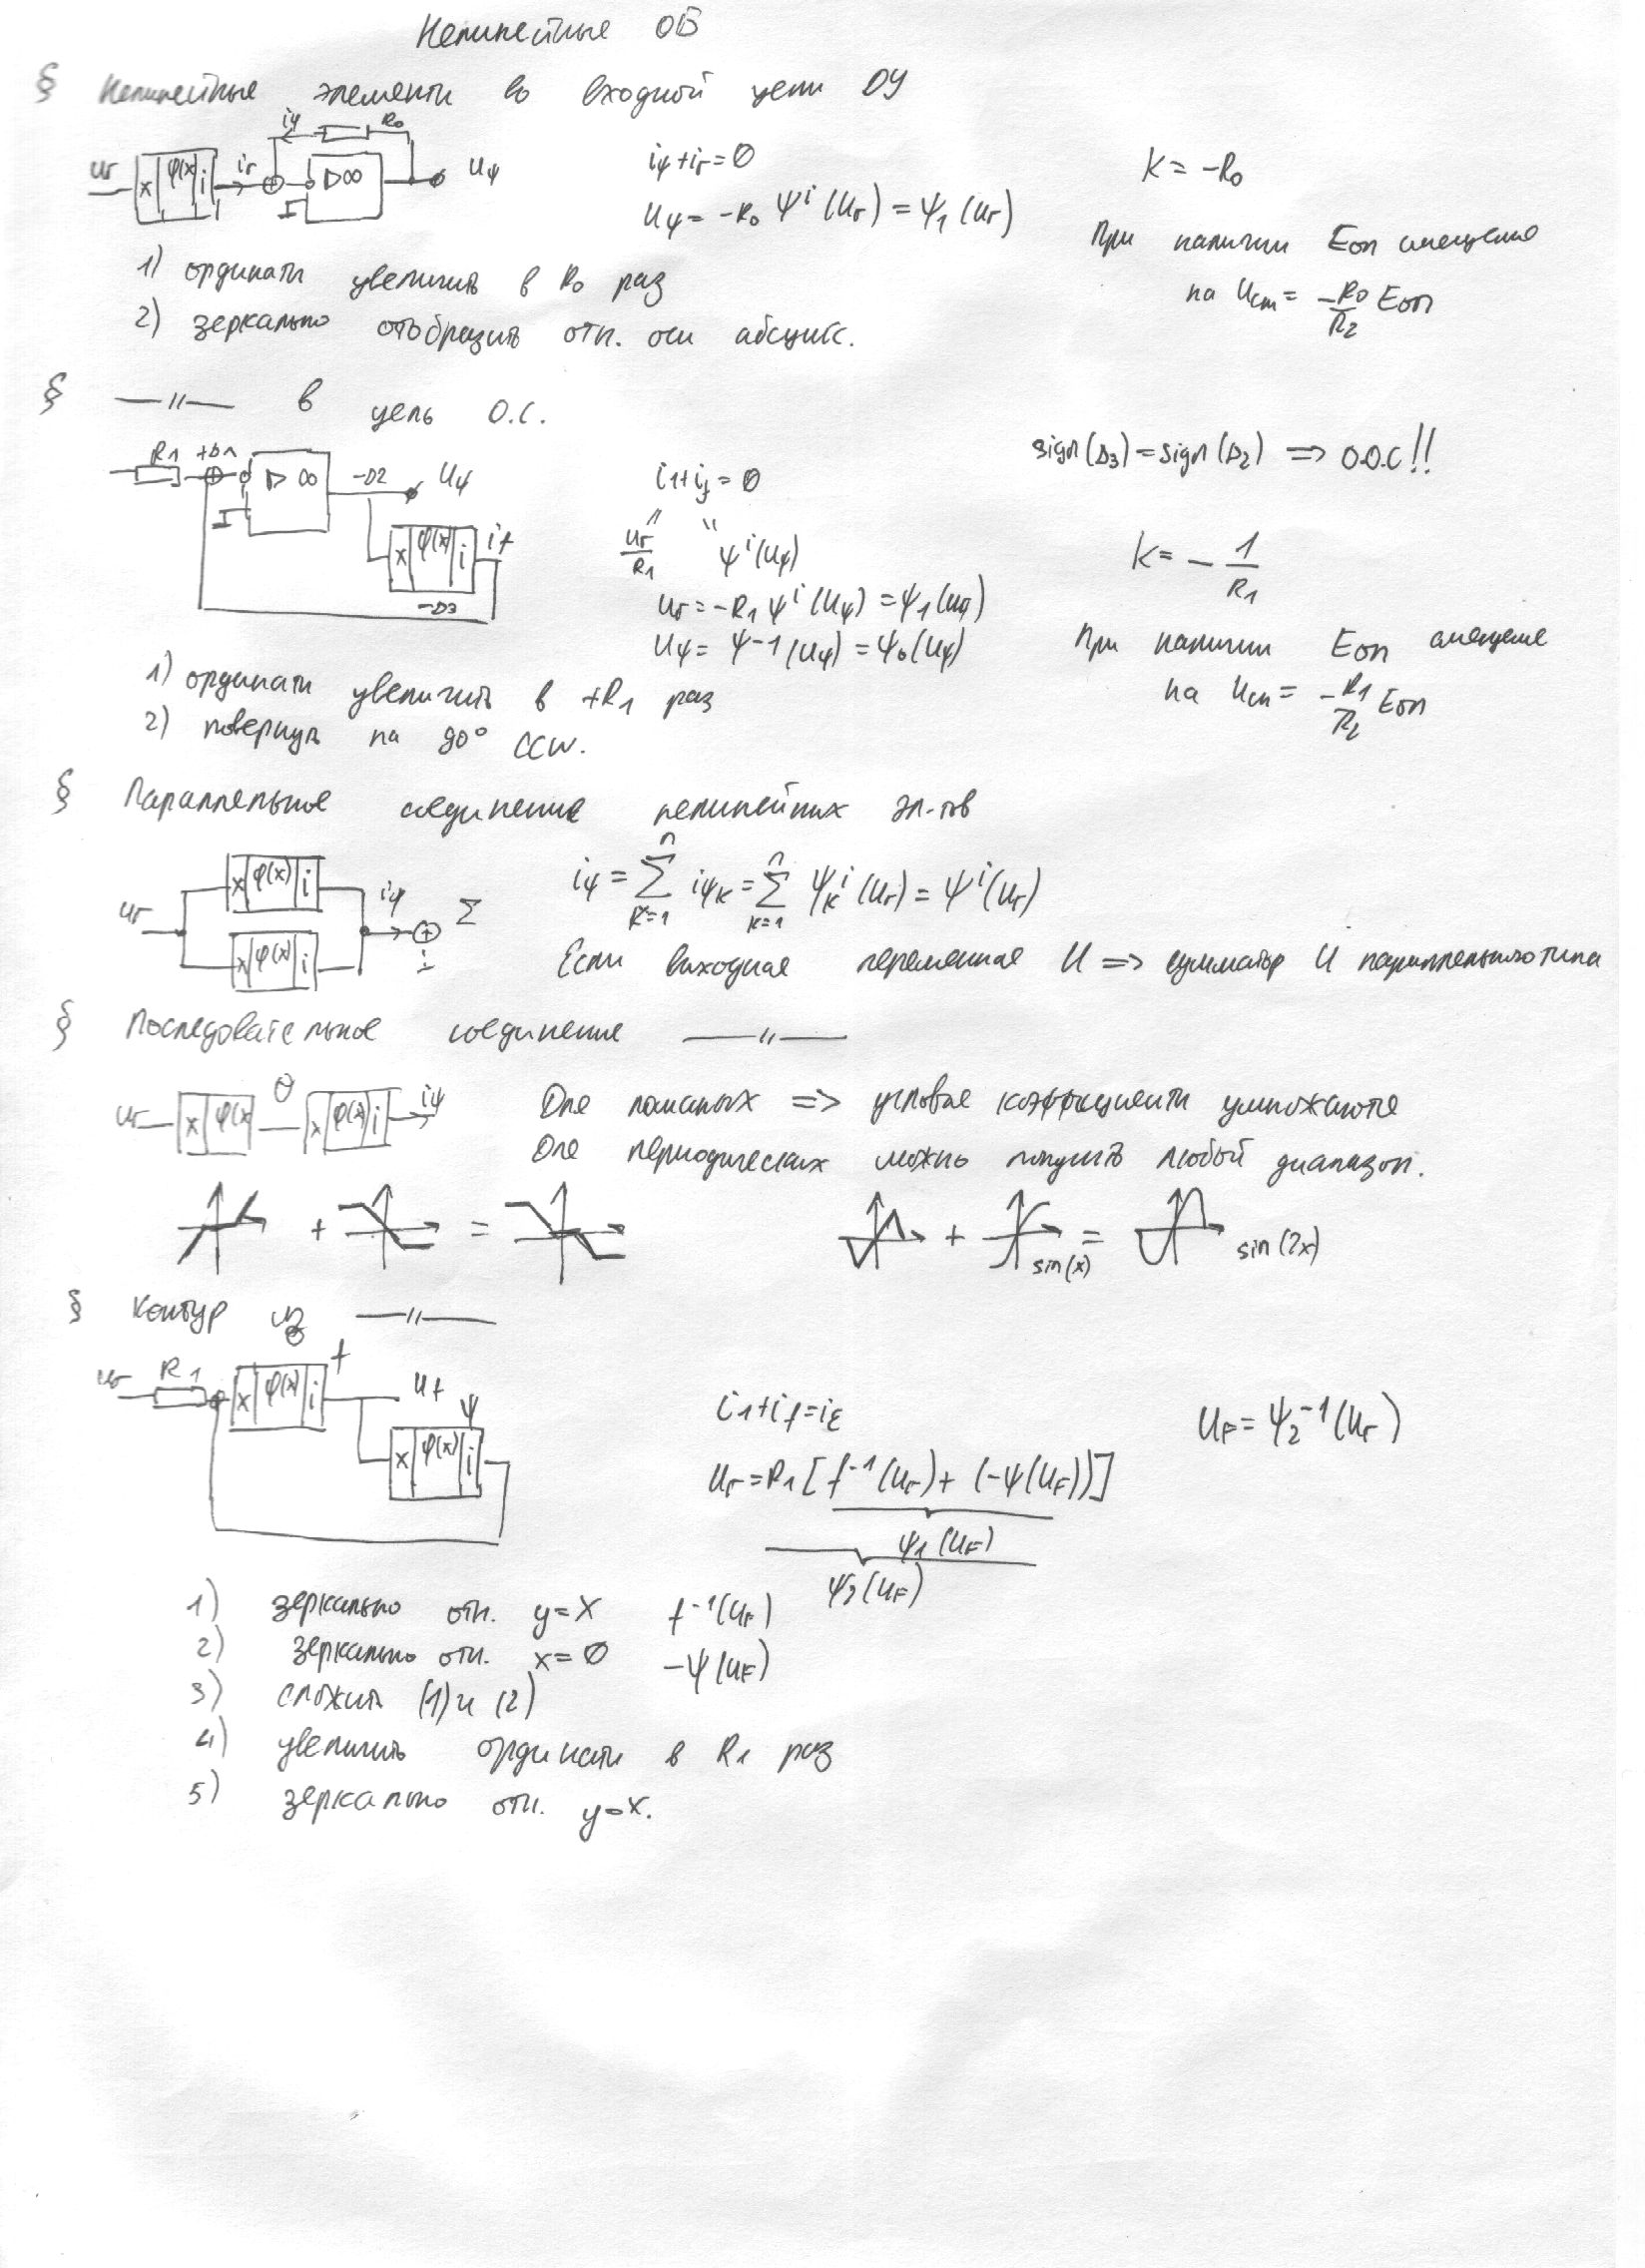 Нелинейные ОБ
§ Нелинейные элементы во входной цепи ОУ
iψ R0
uг x φ(x) i iг ▷∞ Uψ
iψ+iг=0
Uψ= -R0 ψ^i (Uг) = ψ1 (Uг)
K = -R0
При наличии Eоп смещение
на Uсм = -R0/R2 Eоп
1) ординаты увеличить в R0 раз
2) зеркально отобразить отн. оси абсцисс.
§ —〃— в цепь О.С.
R1 +Δ1 ▷∞ -Δ2 Uψ
x φ(x) i if
-Δ3
i1+if = 0
uг/R1 " " ψ^i (Uψ)
Uг = -R1 ψ^i (Uψ) = ψ1 (Uψ)
Uψ = ψ-1 (Uψ) = ψ0 (Uψ)
sign(Δ3)=sign(Δ2) => О.О.С!!
K = - 1/R1
При наличии Eоп смещение
на Uсм = -R1/R2 Eоп
1) ординаты увеличить в +R1 раз
2) повернуть на 90° CCW.
§ Параллельное соединение нелинейных эл-тов
uг x φ(x) i iψ Σ
x φ(x) i i
iψ = Σ(k=1..n) iψk = Σ(k=1..n) ψk^i (Uг) = ψ^i (Uг)
Если выходная переменная U => сумматор U параллельного типа
§ Последовательное соединение —〃—
uг x φ(x) θ x φ(x) i iψ
Для ломаных => угловые коэффициенты умножаются
Для периодических можно получить любой диапазон.
+ =
+ sin(x) = sin(2x)
§ Контур из —〃—
uг R1 x φ(x) i f Uf
x φ(x) i ψ
i1+if=iε
Uг=R1[f^-1 (Uг)+ (-ψ(UF))]
ψ1 (UF)
ψ2 (UF)
UF= ψ2^-1 (Uг)
1) зеркально отн. y=x f^-1(UF)
2) зеркально отн. x=0 -ψ(UF)
3) сложить (1) и (2)
4) увеличить ординаты в R1 раз
5) зеркально отн. y=x.